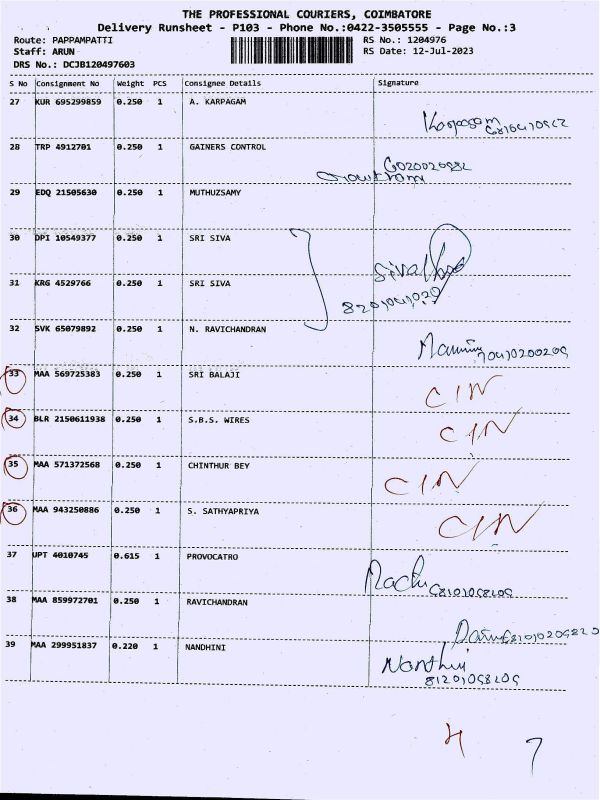 THE PROFESSIONAL COURIERS, COIMBATORE
Delivery Runsheet - P103 - Phone No.:0422-3505555 - Page No.:3
Route: PAPPAMPATTI RS No.: 1204976
Staff: ARUN RS Date: 12-Jul-2023
DRS No.: DCJB120497603
S No Consignment No Weight PCS Consignee Details Signature
27 KUR 695299859 0.250 1 A. KARPAGAM
28 TRP 4912701 0.250 1 GAINERS CONTROL
29 EDQ 21505630 0.250 1 MUTHUZSAMY
30 DPI 10549377 0.250 1 SRI SIVA
31 KRG 4529766 0.250 1 SRI SIVA
32 SVK 65079892 0.250 1 N. RAVICHANDRAN
33 MAA 569725383 0.250 1 SRI BALAJI CIN
34 BLR 2150611938 0.250 1 S.B.S. WIRES CIN
35 MAA 571372568 0.250 1 CHINTHUR BEY CIN
36 MAA 943250886 0.250 1 S. SATHYAPRIYA CIN
37 UPT 4010745 0.615 1 PROVOCATRO
38 MAA 859972701 0.250 1 RAVICHANDRAN
39 MAA 299951837 0.220 1 NANDHINI
4 7